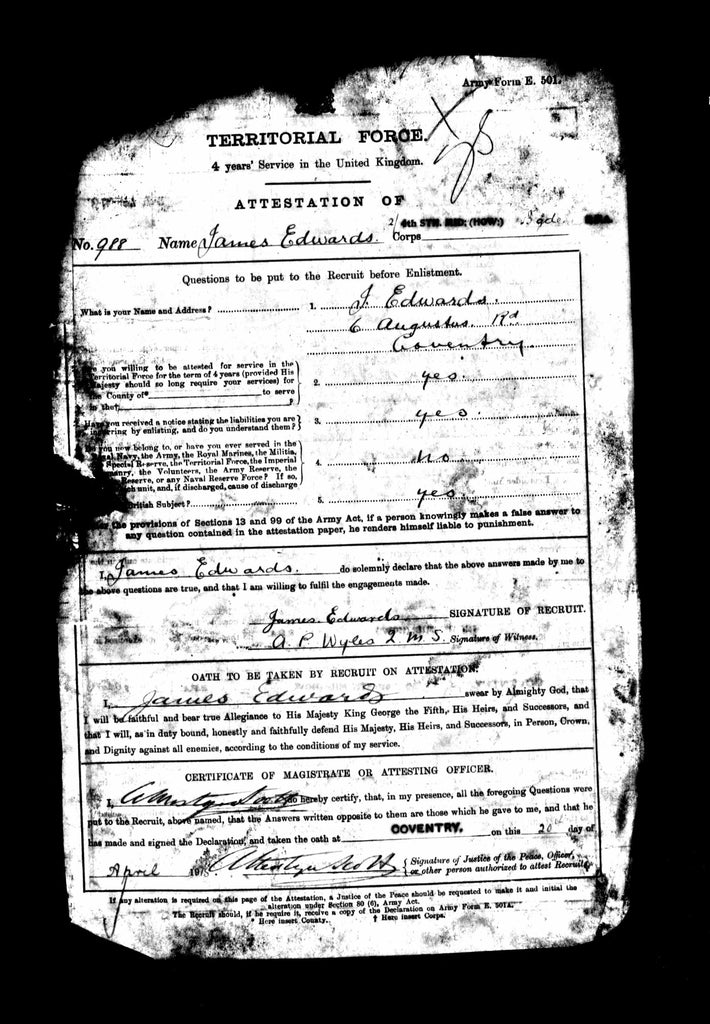 Army Form E. 501.
TERRITORIAL FORCE.
4 years' Service in the United Kingdom.
ATTESTATION OF
No. 988 Name James Edwards. Corps 2/4th STH. MID: (HOW:)
Questions to be put to the Recruit before Enlistment.
What is your Name and Address? 1. J. Edwards.
6 Augustus Rd
Coventry.
you willing to be attested for service in the
Territorial Force for the term of 4 years (provided His
Majesty should so long require your services) for
the County of* to serve
in the† 2. yes.
Have you received a notice stating the liabilities you are
incurring by enlisting, and do you understand them? 3. yes.
Do you now belong to, or have you ever served in the
Navy, the Army, the Royal Marines, the Militia,
Special Reserve, the Territorial Force, the Imperial
the Volunteers, the Army Reserve, the
Reserve, or any Naval Reserve Force? If so,
unit, and, if discharged, cause of discharge 4. no
British Subject? 5. yes
the provisions of Sections 13 and 99 of the Army Act, if a person knowingly makes a false answer to
any question contained in the attestation paper, he renders himself liable to punishment.
I, James Edwards. do solemnly declare that the above answers made by me to
the above questions are true, and that I am willing to fulfil the engagements made.
James. Edwards SIGNATURE OF RECRUIT.
A. P. Wyles Q. M. S. Signature of Witness.
OATH TO BE TAKEN BY RECRUIT ON ATTESTATION.
I, James Edwards swear by Almighty God, that
I will be faithful and bear true Allegiance to His Majesty King George the Fifth, His Heirs, and Successors, and
that I will, as in duty bound, honestly and faithfully defend His Majesty, His Heirs, and Successors, in Person, Crown,
and Dignity against all enemies, according to the conditions of my service.
CERTIFICATE OF MAGISTRATE OR ATTESTING OFFICER.
I, do hereby certify, that, in my presence, all the foregoing Questions were
put to the Recruit, above named, that the Answers written opposite to them are those which he gave to me, and that he
has made and signed the Declaration, and taken the oath at COVENTRY. on this 20 day of
April 191 Signature of Justice of the Peace, Officer,
or other person authorized to attest Recruits
If any alteration is required on this page of the Attestation, a Justice of the Peace should be requested to make it and initial the
alteration under Section 80 (6), Army Act.
The Recruit should, if he require it, receive a copy of the Declaration on Army Form E. 501A.
* Here insert County. † Here insert Corps.